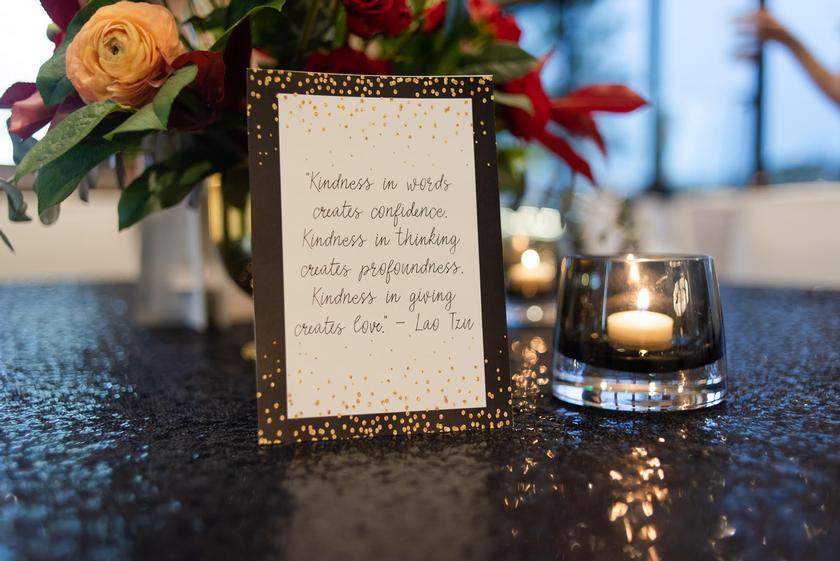 "Kindness in words
creates confidence.
Kindness in thinking
creates profoundness.
Kindness in giving
creates love." - Lao Tzu